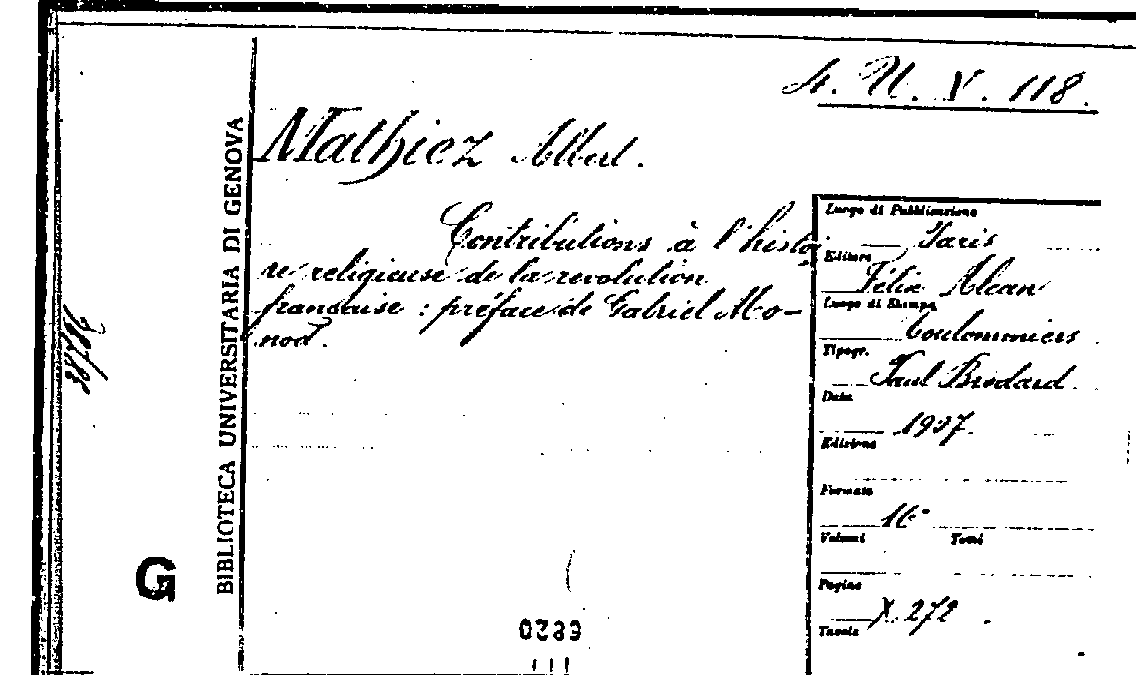 4. U. V. 118.
BIBLIOTECA UNIVERSITARIA DI GENOVA
Mathiez Albert.
Contributions à l'histoi
re religieuse de la revolution
française : préface de Gabriel Mo-
nod.
Luogo di Pubblicazione
Paris
Editore
Félix Alcan
Luogo di Stampa
Coulommiers
Tipogr.
Paul Brodard
Data
1907
Edizione
Formato
16°
Volumi Tomi
Pagine
X. 272
Tavole
G